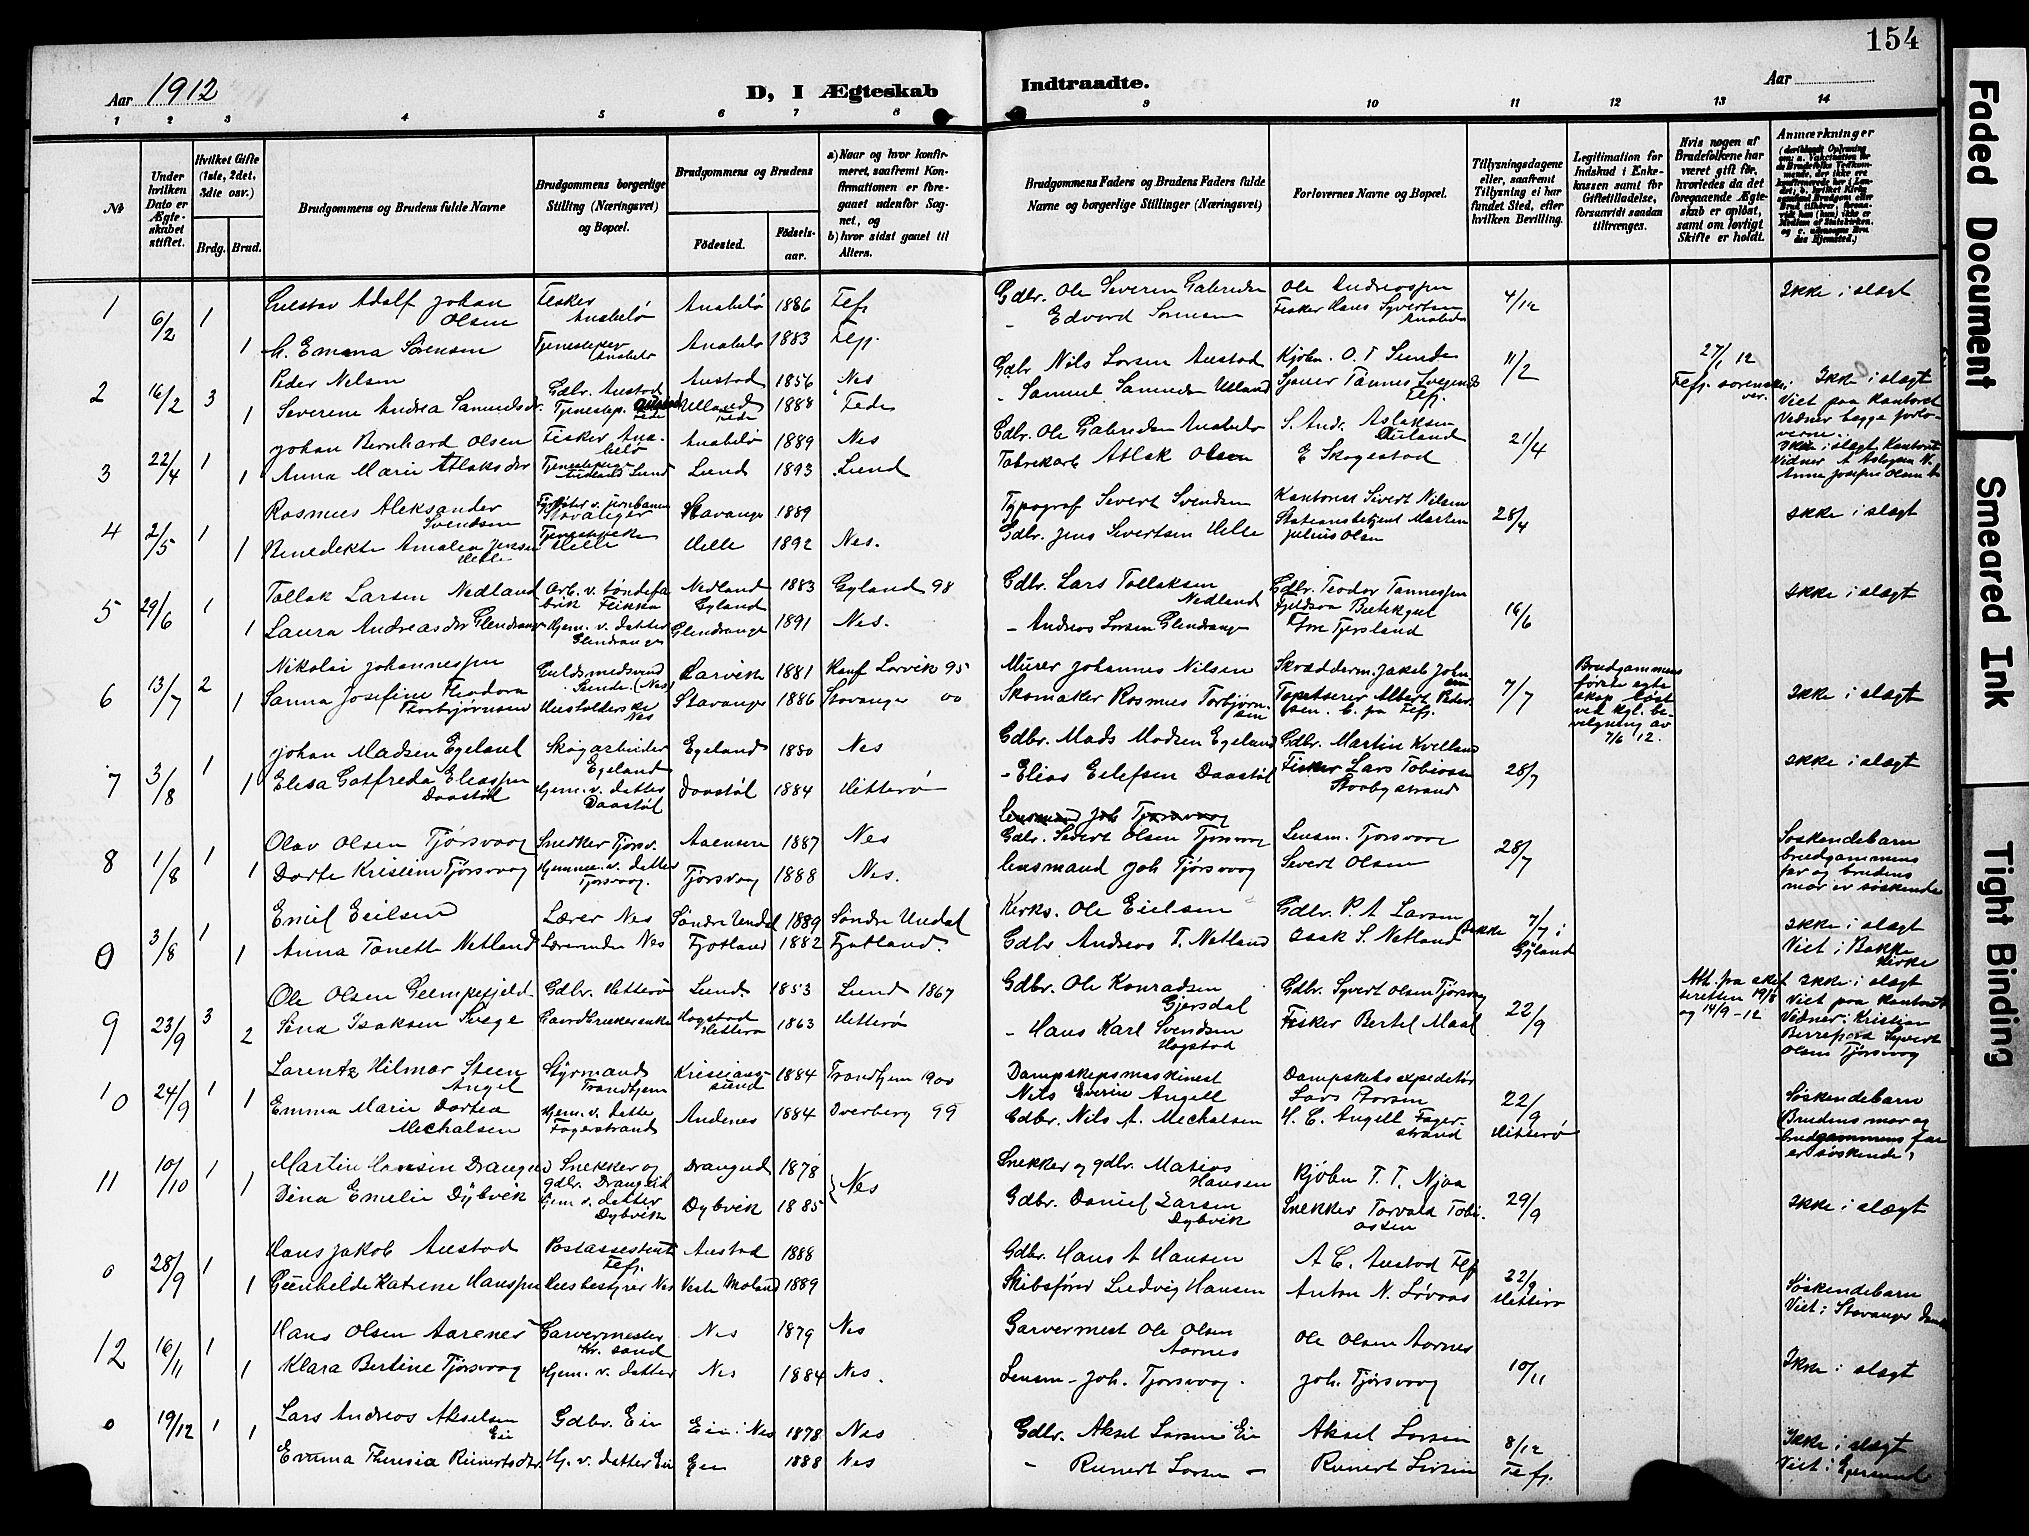 154
Aar 1912
D, I Ægteskab
Indtraadte.
Aar
1 2 3 4 5 6 7 8 9 10 11 12 13 14
№
Under hvilken Dato er Ægteskabet stiftet.
Hvilket Gifte (1ste, 2det, 3die osv.)
Brdg. Brud.
Brudgommens og Brudens fulde Navne
Brudgommens borgerlige Stilling (Næringsvei) og Bopæl.
Brudgommens og Brudens
Fødested.
Fødselsaar.
a) Naar og hvor konfirmeret, saafremt Konfirmationen er foregaaet udenfor Sognet, og
b) hvor sidst gaaet til Alters.
Brudgommens Faders og Brudens Faders fulde Navne og borgerlige Stillinger (Næringsvei)
Forlovernes Navne og Bopæl.
Tillysningsdagene eller, saafremt Tillysning ei har fundet Sted, efter hvilken Bevilling.
Legitimation for Indskud i Enkekassen samt for Giftetilladelse, forsaavidt saadan tiltrænges.
Hvis nogen af Brudefolkene har været gift før, hvorledes da det foregaaende Ægteskab er opløst, samt om lovligt Skifte er holdt.
Anmærkninger
1 6/2 1 Gustav Adolf Johan Olsen Fisker Anabelø Anabelø 1886 Fefj. Gdbr. Ole Severin Gabrielsen Ole Andreassen 4/12 Ikke i slægt
1 G. Emma Sørensen Tjenestepike Anabelø Anabelø 1883 Fefj. - Edvard Sørensen Fisker Hans Syvertsen Anabelø
2 16/2 3 Peder Nilsen Gdbr. Austad Austad 1856 Nes Gdbr Nils Larsen Austad Kjøbm. O. T. Sunde 11/2 27/1 12 Ikke i slægt
1 Severine Andrea Samuelsdr. Tjenestep. 1888 Fede - Samuel Samuelsen Ulland Fefj. Viet paa Kontoret
3 22/4 1 Johan Bernhard Olsen Fisker Anabelø Anabelø 1889 Nes Gdbr. Ole Gabrielsen Anabelø S. Andr. Aslaksen 21/4 Ikke i slægt Kontoret
1 Anna Marie Atlaksdr Tjenestepige Lund 1893 Lund Fabrikarb Atlak Olsen E Skogestad
4 2/5 1 Rasmus Aleksander Svendsen Stavanger 1889 Typograf Sivert Svendsen Kantonist Sivert Nilsen 28/4 Ikke i slægt
1 Benedikte Amalia Jensen Helle Tjenestepike Helle Helle 1892 Nes. Gdbr. Jens Sivertsen Helle Stationsbetjent Martin Julius Olsen
5 29/6 1 Tollak Larsen Nedland Arb. v. tøndefabrik Flikka Nedland Gyland 1883 Gyland 98 Gdbr. Lars Tollaksen Nedland Gdbr. Teodor Tønnessen 16/6 Ikke i slægt
1 Laura Andreasdr Glendrange Hjem. v. datter Glendrange Glendrange 1891 Nes. - Andreas Larsen Glendrange Tore Tjersland
6 13/7 2 Nikolai Johannessen Guldsmedsvend Sunde (Nes) Larvik 1881 Konf Larvik 95 Murer Johannes Nilsen Skrædderm. Jakob Johnsen 7/7 Brudgommens første egteskap løst ved kgl. bevilgning av 7/6 12. Ikke i slægt
1 Sanna Josefine Teodora Thorbjørnsen Husholderske Nes Stavanger 1886 Stavanger 00 Skomaker Rasmus Torbjørnsen Tapetserer Albert Pedersen
7 3/8 1 Johan Madsen Egeland Skogarbeider Egeland Egeland 1880 Nes Gdbr. Mads Madsen Egeland Gdbr. Martin Kvelland 28/7 Ikke i slægt
1 Elisa Gotfreda Eliassen Daastøl Hjem. v. datter Daastøl Daastøl 1884 Hitterø - Elias Eilefsen Daastøl Fisker Lars Tobiassen Strandbystrand
8 1/8 1 Olav Olsen Tjørsvaag Snedker Tjørsv. Aaensire 1887 Nes Lensmand Joh Tjørsvaag Gdbr. Sivert Olsen Tjørsvaag Lensm. Tjørsvaag 28/7 Søskendebarn brudgommens far og brudens mor er søskende
1 Dorte Kristine Tjørsvaag Hjemme v. datter Tjørsvaag. Tjørsvaag 1888 Nes. lensmand Joh Tjørsvaag Sivert Olsen
0 3/8 1 Emil Eielsen Lærer Nes Søndre Undal 1889 Søndre Undal Kirks. Ole Eielsen Gdbr. P. A Larsen Bakke 7/7 i Gyland Ikke i slægt Viet i Bakke Kirke
1 Anna Tonette Netland Lærerinde Nes Fjotland 1882 Fjotland. Gdbr Andreas T. Netland Isak S. Netland
9 23/9 3 Ole Olsen Gumpefjeld Gdbr. Hitterø Lund. 1853 Lund 1867 Gdbr. Ole Konradsen Gjersdal Gdbr. Syvert Olsen Tjørsvaag 22/9 Att. fra skifteretten 19/8 og 14/9-12 Ikke i slægt Viet paa Kontoret Vidner: Kristian Birrefjord Syvert Olsen Tjørsvaag
2 Sina Isaksen Svege Gaardbrukerenke Hogstad Hitterø 1863 Hitterø - Hans Karl Svendsen Hogstad Fisker Bertel Maal
10 24/9 1 Lorentz Hilmar Steen Angel Styrmand Trondhjem Kristiansund 1884 Trondhjem 1900 Dampskipsmaskinist Nils Everin Angell Dampskibsexpeditør 22/9 Hitterø Søskendebarn Brudens mor og brudgommens far er søskende.
1 Emma Marie Dortea Michalsen Hjem. v. datter Fagerstrand Andenes 1884 Dverberg 99 Gdbr. Nils A. Michalsen H. C. Angell Fagerstrand
11 10/10 1 Martin Hansen Drangeid Snekker og gdbr. Drangeid Drangeid 1878 Nes Snekker og gdbr. Matias Hansen Kjøbm T. T. Njaa 29/9 Ikke i slægt
1 Dina Emelie Dybvik Hjem v. datter Dybvik Dybvik 1885 Gdbr. Daniel Larsen Dybvik Snekker Torvald Tobiassen
0 28/9 1 Hans Jakob Austad Postassistent Fefj. Austad 1888 Gdbr. Hans A Hansen A C. Austad Fefj 22/9 Hitterø Søskendebarn Viet i Stavanger Domk
1 Gunhilde Katrine Hanssen Husbestyrer Nes Vestre Moland 1889 Skibsfører Ludvig Hansen Anton N. Løvaas
12 16/11 1 Hans Olsen Aarenes Garvermester Kr. sand Nes 1879 Nes Garvermest Ole Olsen Aarnes Ole Olsen Aarnes 10/11 Ikke i slægt
1 Klara Bertine Tjørsvaag Hjem. v. datter Nes 1884 Nes. Lensm - Joh. Tjørsvaag. Joh. Tjørsvaag
0 19/12 1 Lars Andreas Akselsen Eie Gdbr. Eie Eie i Nes 1878 Nes Gdbr. Aksel Larsen Eie Aksel Larsen 8/12 Fefj. Ikke i slægt Viet i Egersund
1 Emma Theresia Reinertsdr. Hj. v. datter Eie Eie 1888 Nes - Reinert Larsen - Reinert Larsen
Faded Document
Smeared Ink
Tight Binding